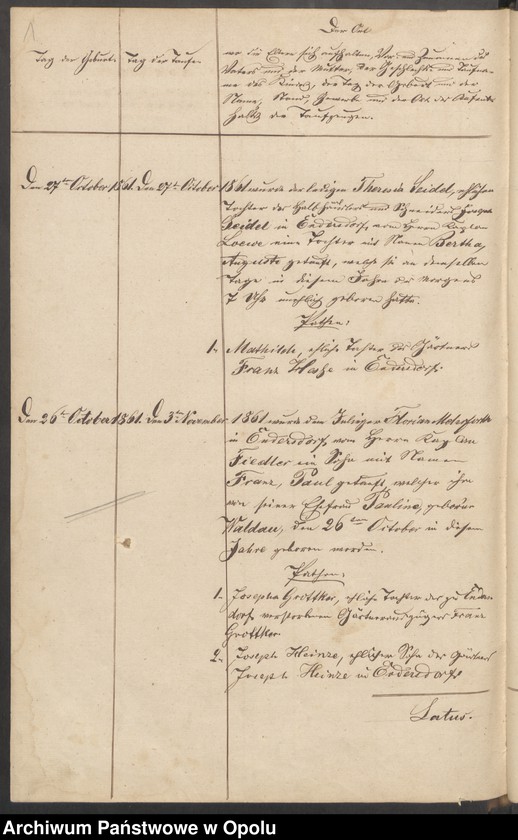 Der Ort
Tag der Geburt. Tag der Taufe.
wo die Eltern sich aufhalten, Vor- und Zunamen des
Vaters und der Mutter, der Geschlechts und Taufna-
me des Kindes, der Tag der Geburt und der
Name, Stand, Gewerbe und der Ort des Aufent-
halts der Taufzeugen.
Den 27ten October 1861. Den 27ten October 1861 wurde der ledigen Theresia Seidel, ehlichen
Tochter des Halbhändlers und Schneiders
Seidel in Endersdorf, vom Herrn Kaplan
Loewe eine Tochter mit Namen Bertha,
Auguste getauft, welche sie an demselben
Tage in diesem Jahre des Morgens
7 Uhr unehlich geboren hatte.
Pathen:
1. Mathilde, ehliche Tochter des Gärtners
Franz Hase in Endersdorf.
Den 26ten October 1861. Den 3ten November 1861 wurde dem Inlieger Florian
in Endersdorf vom Herrn Kaplan
Fiedler ein Sohn mit Namen
Franz, Paul getauft, welcher ihm
von seiner Ehefrau Pauline, geborne
Waldau, den 26ten October in diesem
Jahre geboren worden.
Pathen:
1. Josepha Grottker, ehliche Tochter des zu Enders-
dorf verstorbenen Gärtnerauszügers Franz
Grottker.
2. Joseph Heinze, ehlicher Sohn des Gärtners
Joseph Heinze in Endersdorf.
Latus.
Archiwum Państwowe w Opolu